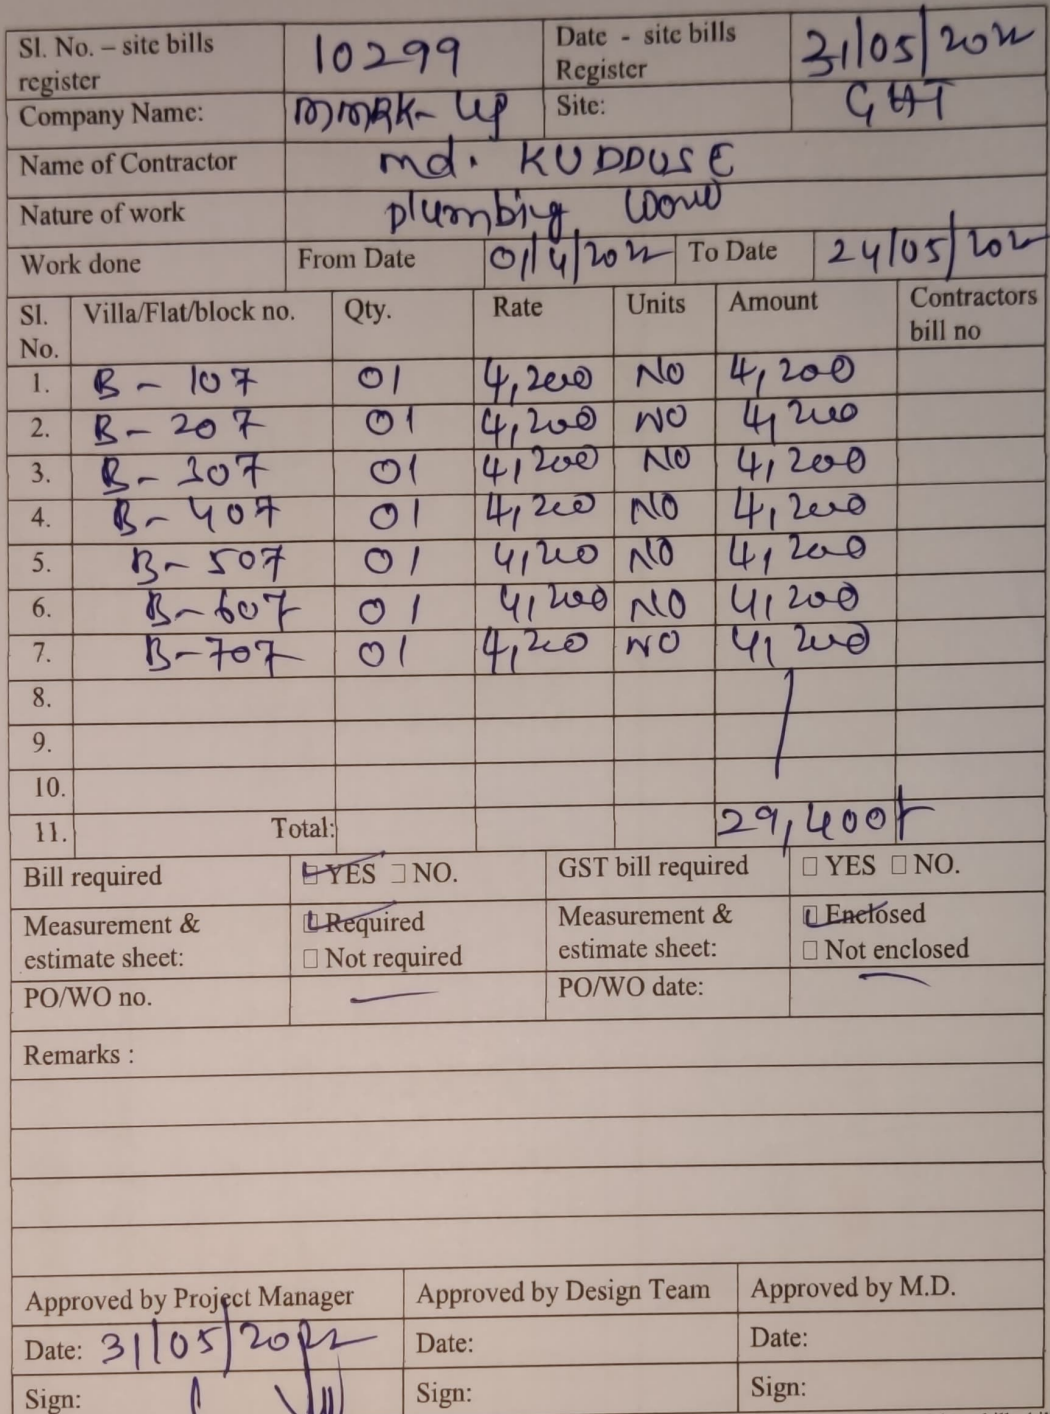 Sl. No. – site bills register 10299 Date - site bills Register 31/05/2022
Company Name: MMRK- Site: GHT
Name of Contractor md. KUDDUSE
Nature of work plumbing
Work done From Date 01/4/2022 To Date 24/05/2022
Sl. No. Villa/Flat/block no. Qty. Rate Units Amount Contractors bill no
1. B - 107 01 4,200 NO 4,200
2. B - 207 01 4,200 NO 4,200
3. B - 307 01 4,200 NO 4,200
4. B - 407 01 4,200 NO 4,200
5. B - 507 01 4,200 NO 4,200
6. B - 607 01 4,200 NO 4,200
7. B - 707 01 4,200 NO 4,200
8.
9.
10.
11. Total: 29,400/-
Bill required YES NO. GST bill required YES NO.
Measurement & estimate sheet: Required Measurement & estimate sheet: Enclosed
Not required Not enclosed
PO/WO no. — PO/WO date: —
Remarks :
Approved by Project Manager Approved by Design Team Approved by M.D.
Date: 31/05/2022 Date: Date:
Sign: Sign: Sign: